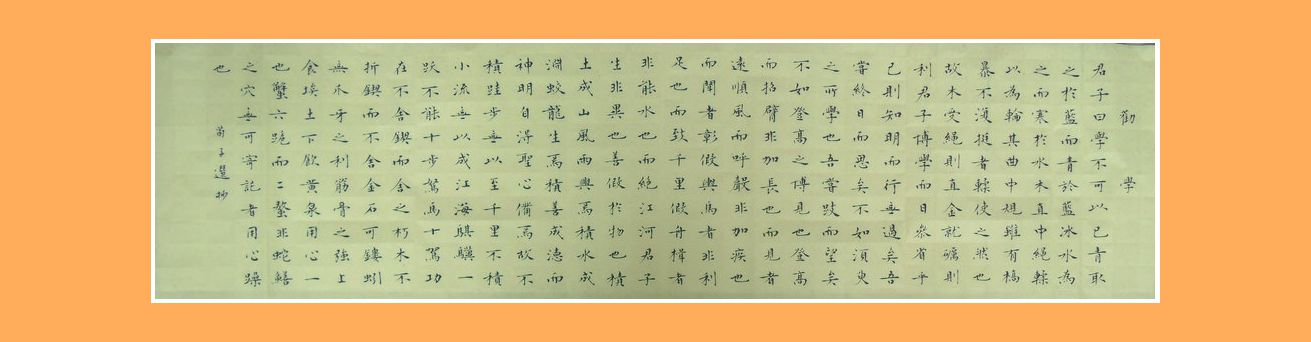 勸學
君子曰學不可以已青取
之於藍而青於藍冰水為
之而寒於水木直中繩輮
以為輪其曲中規雖有槁
暴不復挺者輮使之然也
故木受繩則直金就礪則
利君子博學而日參省乎
己則知明而行無過矣吾
嘗終日而思矣不如須臾
之所學也吾嘗跂而望矣
不如登高之博見也登高
而招臂非加長也而見者
遠順風而呼聲非加疾也
而聞者彰假輿馬者非利
足也而致千里假舟楫者
非能水也而絕江河君子
生非異也善假於物也積
土成山風雨興焉積水成
淵蛟龍生焉積善成德而
神明自得聖心備焉故不
積跬步無以至千里不積
小流無以成江海騏驥一
躍不能十步駑馬十駕功
在不舍鍥而舍之朽木不
折鍥而不舍金石可鏤蚓
無爪牙之利筋骨之強上
食埃土下飲黃泉用心一
也蟹六跪而二螯非蛇鱔
之穴無可寄託者用心躁
也
荀子選抄